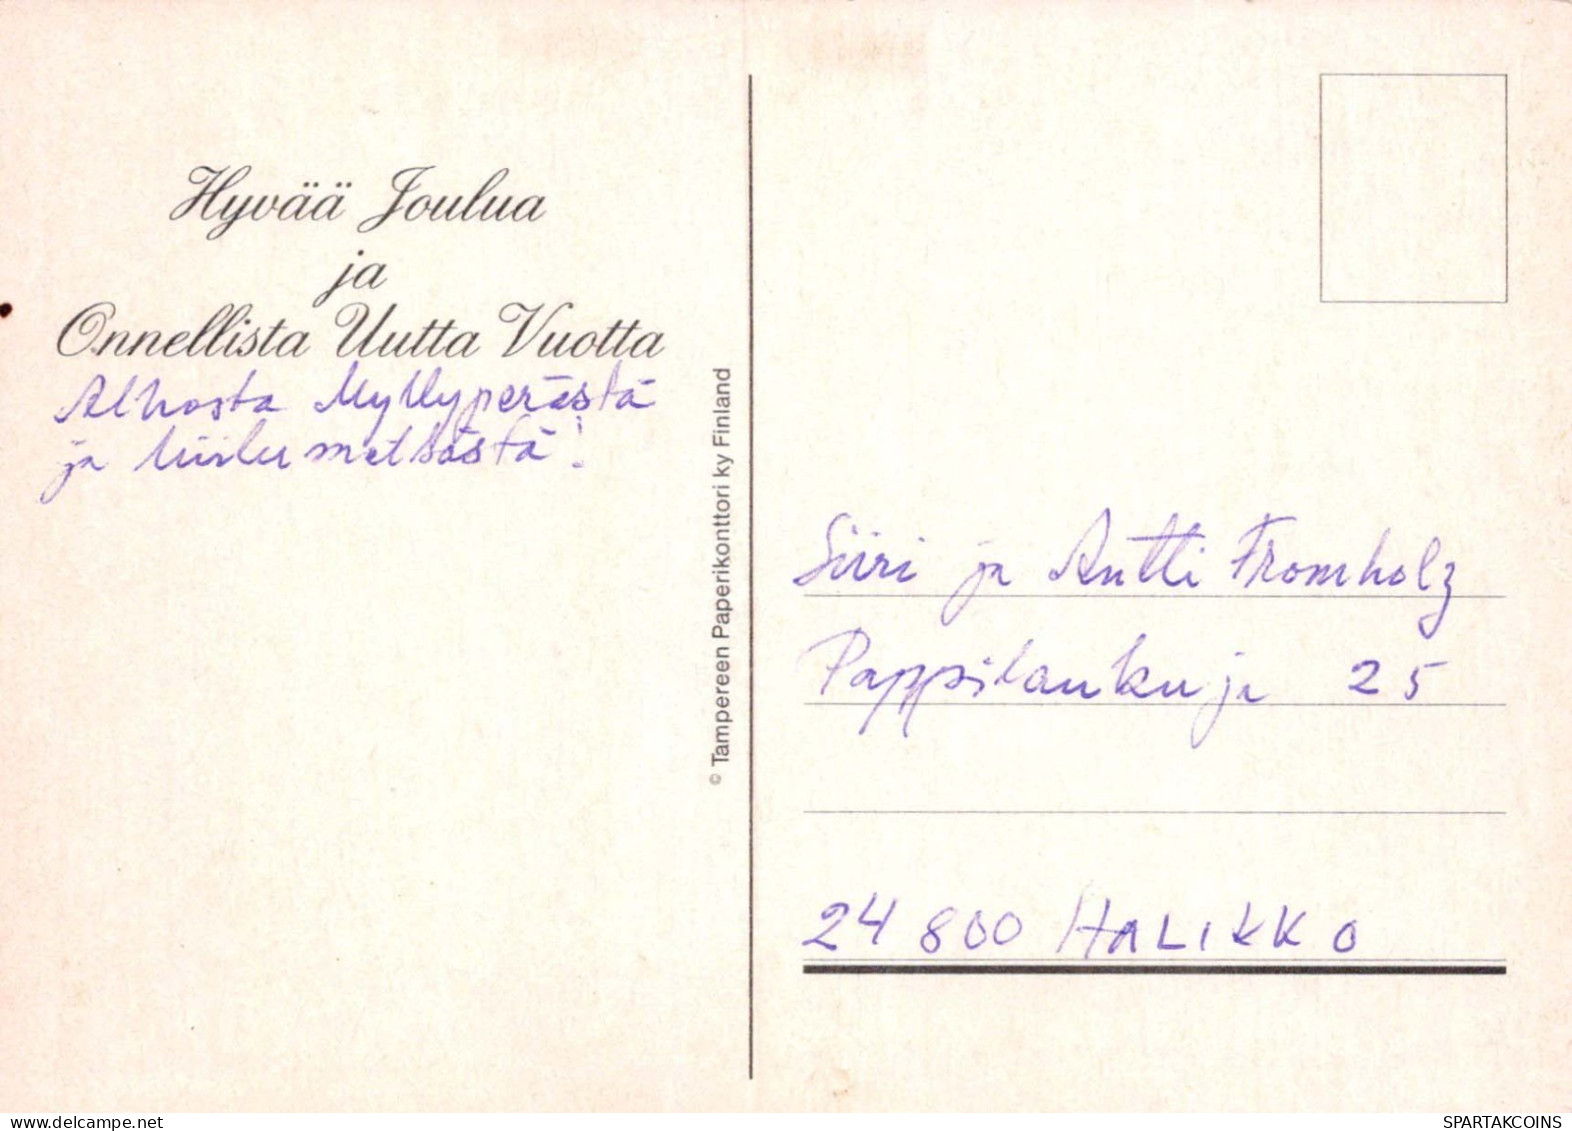 Hyvää Joulua
ja
Onnellista Uutta Vuotta
Alhosta Myllyperästä
ja metsästä!
© Tampereen Paperikonttori ky Finland
Siiri ja Antti Fromholz
Pappilankuja 25
24800 HALIKKO
www.delcampe.net
SPARTAKCOINS